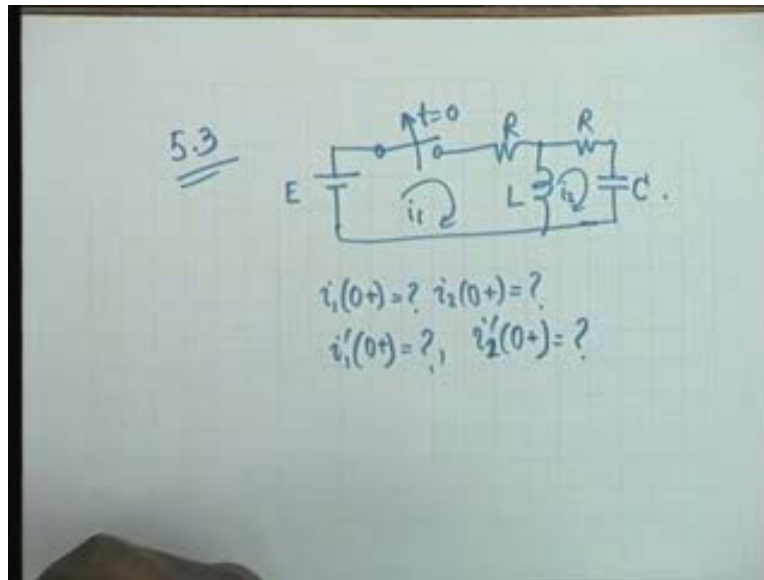 5.3
t=0
R R
E i₁ L i₂ C.
i₁(0+)=? i₂(0+)=?
i₁'(0+)=?, i₂'(0+)=?